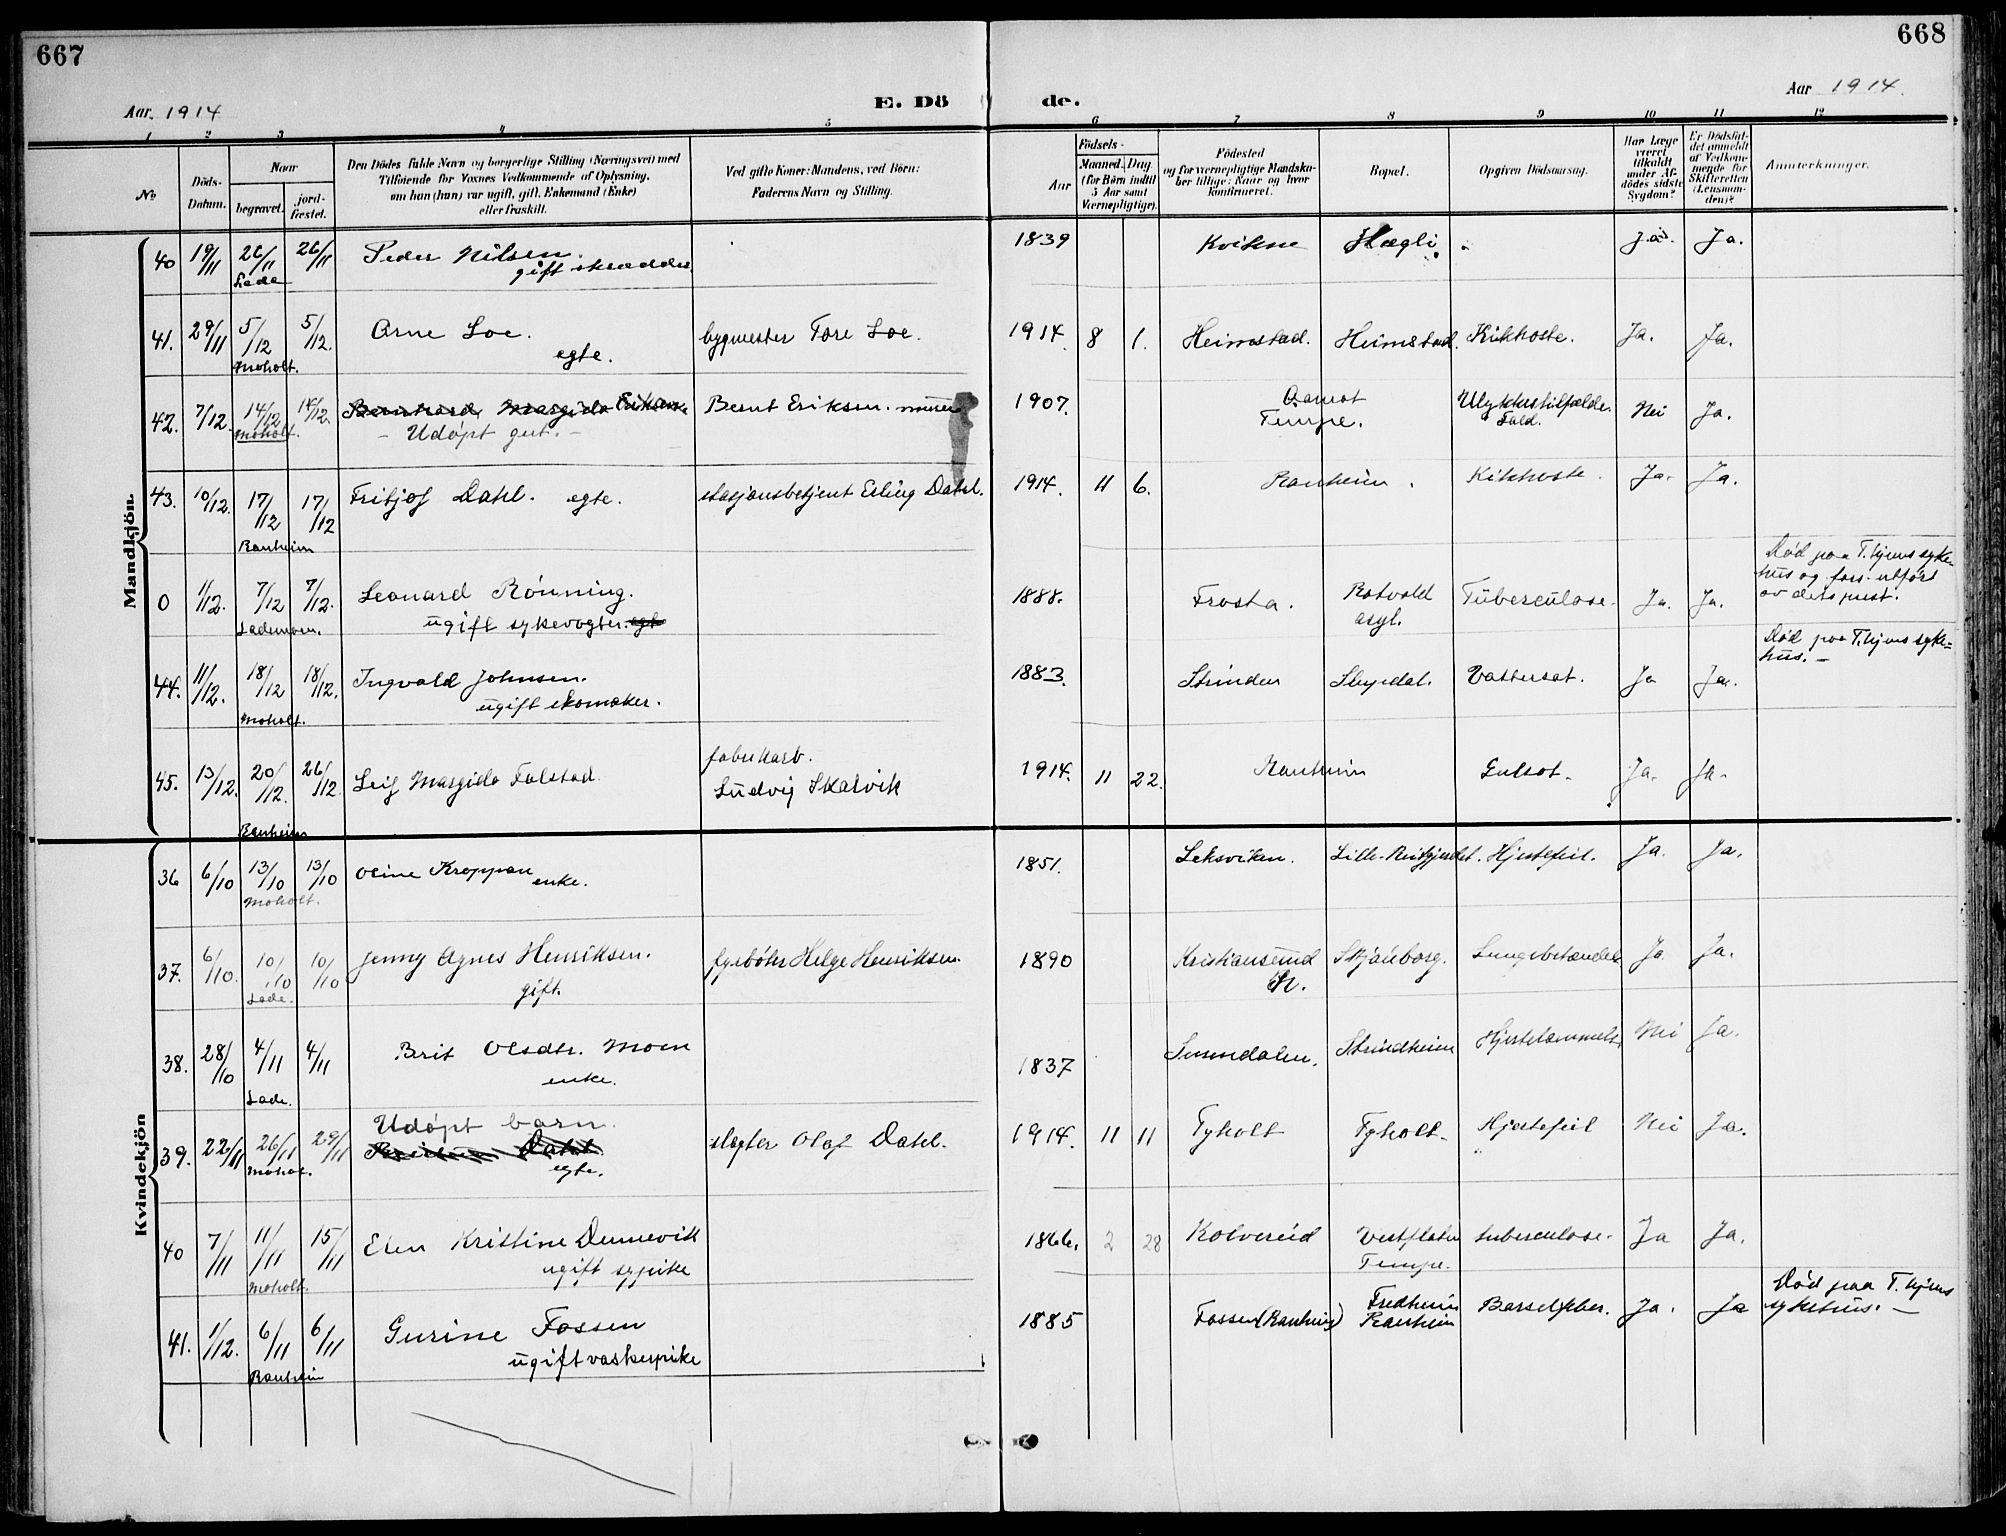 667
668
Aar 1914
E. Dö
de.
Aar 1914.
1 2 3 4 5 6 7 8 9 10 11 12
No
Döds-Datum.
Naar
begravet.
jord-fæstet.
Den Dödes fulde Navn og borgerlige Stilling (Næringsvei) med
Tilføiende for Voxnes Vedkommende af Oplysning,
om han (hun) var ugift, gift, Enkemand (Enke)
eller fraskilt.
Ved gifte Koner: Mandens, ved Börn:
Faderens Navn og Stilling.
Födsels-
Aar
Maaned. Dag
(for Börn indtil
5 Aar samt
Værnepligtige).
Födested
og for værnepligtige Mandskaber tillige: Naar og hvor
konfirmeret.
Bopæl.
Opgiven Dödsaarsag.
Har Læge
været
tilkaldt
under Afdödes sidste
Sygdom?
Er Dödsfaldet anmeldt
af Vedkommende for
Skifteretten
(Lensmanden)?
Anmerkninger.
Mandkjön
40 19/11 26/11 Lade 26/11 Peder Nilsen. gift skrædder 1839 Kvikne Hægli Ja. Ja.
41. 29/11 5/12 Moholt. 5/12. Arne Loe. egte. bygmester Tore Loe. 1914. 8 1. Heimstad. Heimstad. Kikhoste. Ja. Ja.
42. 7/12. 14/12 Moholt. 14/12. Bernhard Margido Eriksen
- Udøpt gut. - Bernt Eriksen. murer 1907. Tempe. Ulykkestilfælde. Fald. Nei Ja.
43. 10/12. 17/12 Ranheim 17/12 Fritjof Dahl. egte. stasjonsbetjent Erling Dahl. 1914. 11 6. Ranheim. Kikhoste. Ja. Ja.
0 1/12. 7/12 Lademoen. 7/12. Leonard Rønning. ugift sykevogter. egte 1888. Frosta. Rotvold asyl. Tuberculose. Ja. Ja. Død paa T.hjems sykehus og fors. utført av dets prest.
44. 11/12. 18/12 Moholt. 18/12. Ingvald Johnsen. ugift skomaker. 1883. Strinden Vattersot. Ja Ja. Død paa T.hjems sykehus. -
45. 13/12. 20/12. Ranheim 26/12 Leif Margido Falstad fabrikarb. Ludvig Skarvik 1914. 11 22. Ranheim Gulsot. Ja. Ja.
Kvindekjön
36 6/10 13/10 Moholt. 13/10 Oline Kroppan enke. 1851. Leksviken. Hjertefeil. Ja. Ja.
37. 6/10. 10/10 Lade. 10/10 Jenny Agnes Henriksen. gift. fyrbøter Helge Henriksen. 1890 Kristiansund N. Skjønborg. Lungebetændelse Ja Ja.
38. 28/10 4/11 Lade. 4/11 Brit Olsdtr. Moen enke. 1837 Surendalen. Strindheim Hjertelammelse Nei Ja.
39. 22/11 26/11 Moholt. 29/11 Udøpt barn. Dahl egte. slagter Olaf Dahl. 1914. 11 11 Tyholt Tyholt. Hjertefeil Nei Ja.
40 7/11 11/11 Moholt. 15/11 Elen Kristine Dunnevik ugift sypike 1866. 2 28 Kolvereid Tempe. tuberculose. Ja Ja.
41. 1/12. 6/11 Ranheim 6/11 Gurine Fossen ugift vaskepike 1885 Fossen (Ranheim) Fredheim Ranheim Barselfeber. Ja. Ja Død paa T.hjems sykehus. -